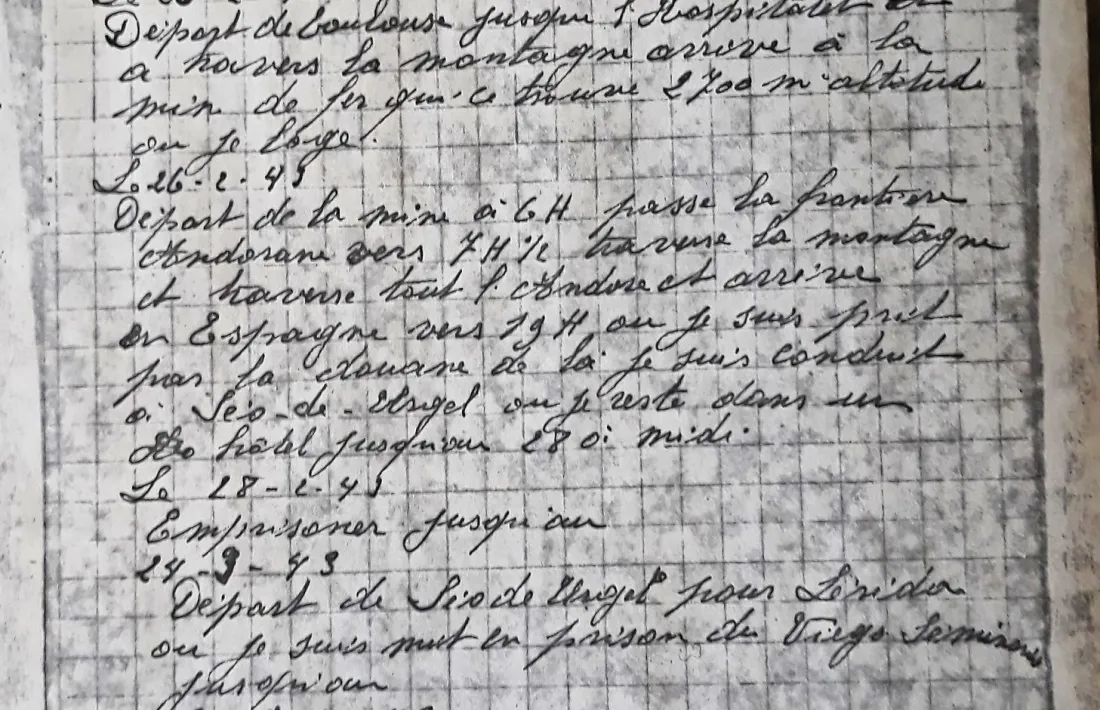 Départ de Toulouse jusqu'a l'Hospitalet et
a travers la montagne arrive à la
min de fer qui ce trouve 2700 m altitude
ou je loge.
Le 26-2-43
Départ de la mine à 6H passe la frontiere
Andorane vers 7H 1/2 traverse la montagne
et traverse tout l'Andore et arrive
en Espagne vers 19 H ou je suis prit
par la douane de là je suis conduit
à Séo-de-Urgel ou je reste dans un
hôtel jusqu'au 28 à midi.
Le 28-2-43
Emprisoner jusqu'au
24-3-43
Départ de Séo de Urgel pour Lérida
ou je suis mut en prison du Viego Seminario
jusqu'au